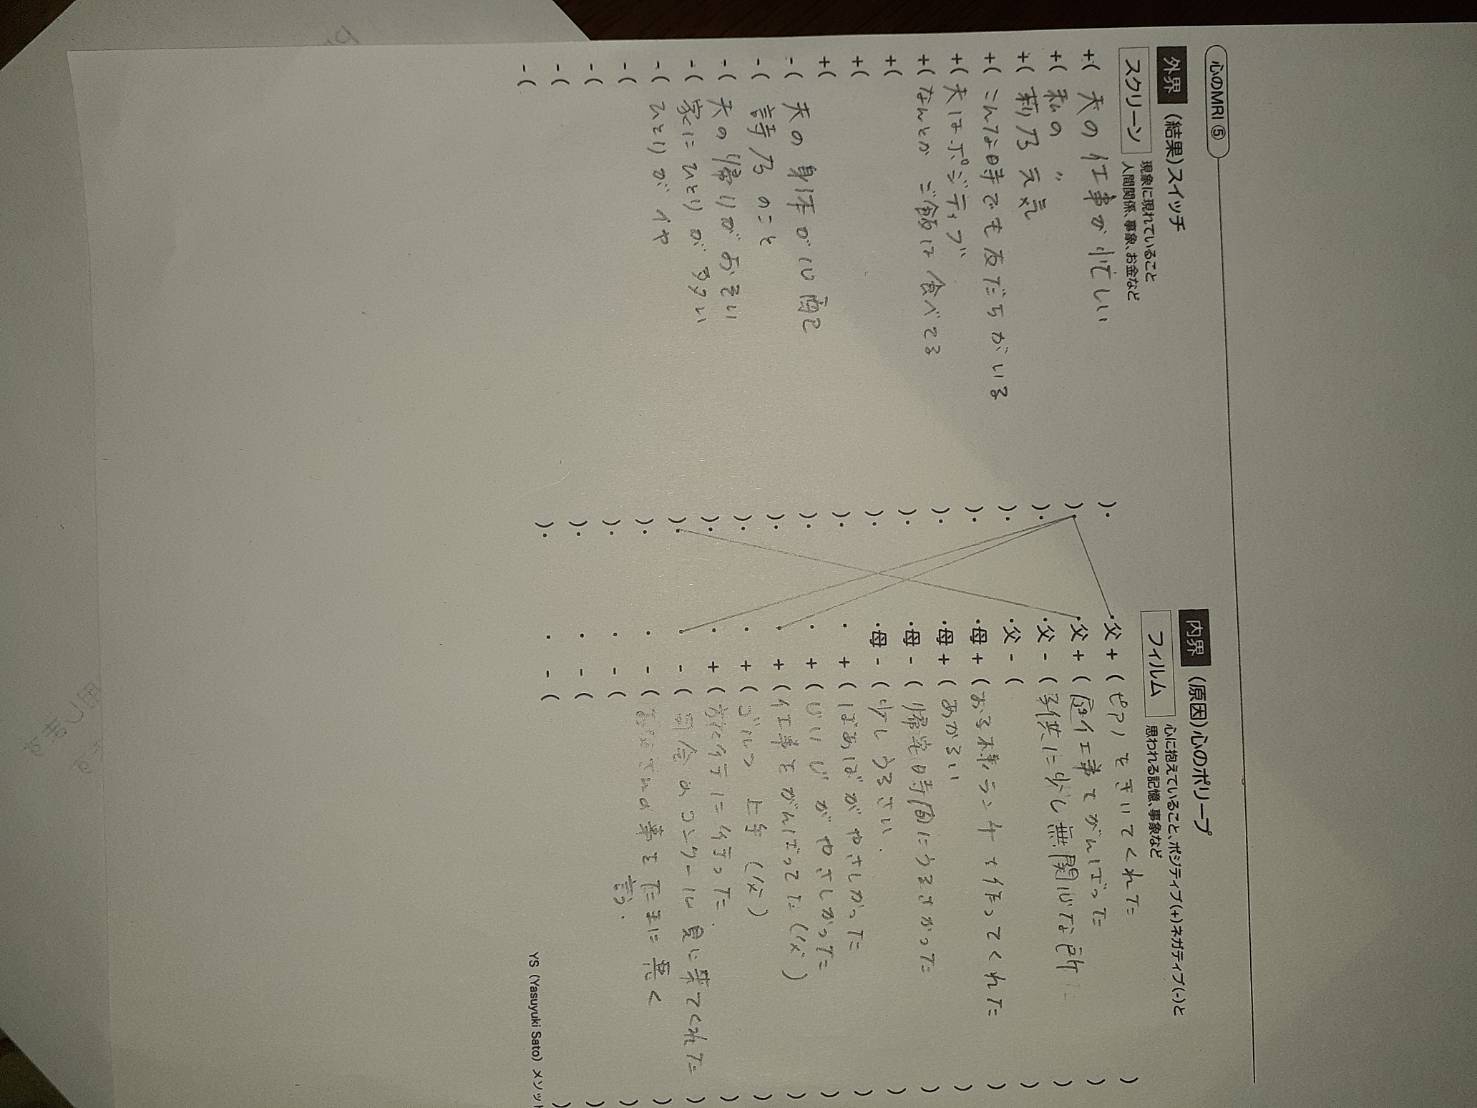 心のMRI ⑤
外界 (結果)スイッチ
スクリーン
現象に現れていること
人間関係、事象、お金など
+( 夫の仕事が忙しい ).
+( 私の 〃 )
+( 莉乃 元気 ).
+( こんな時でも友だちがいる ).
+( 夫はポジティブ ).
+( なんとか ご飯は食べてる ).
+( ).
+( ).
+( ).
-( 夫の身体が心配 ).
-( 詩乃のこと ).
-( 夫の帰りがおそい ).
-( 家にひとりが多い ).
-( ひとりがイヤ ).
-( ).
-( ).
-( ).
-( ).
内界 (原因)心のポリープ
フィルム
心に抱えていること、ポジティブ(+)ネガティブ(-)と
思われる記憶、事象など
・父 + ( ピアノをきいてくれた )
・父 + ( 仕事でがんばった )
・父 - ( 子供に少し無関心な所 )
・父 - ( )
・母 + ( お子様ランチを作ってくれた )
・母 + ( あかるい )
・母 - ( 帰宅時間にうるさかった )
・母 - ( 少しうるさい. )
・ + ( ばあばがやさしかった )
・ + ( じいじがやさしかった )
・ + ( 仕事をがんばってた (父) )
・ + ( ゴルフ 上手 (父) )
・ + ( 旅行に行った )
・ - ( コンクール見に来てくれた )
・ - ( たまに悪く言う. )
・ - ( )
・ - ( )
・ - ( )
YS (Yasuyuki Sato) メソッ